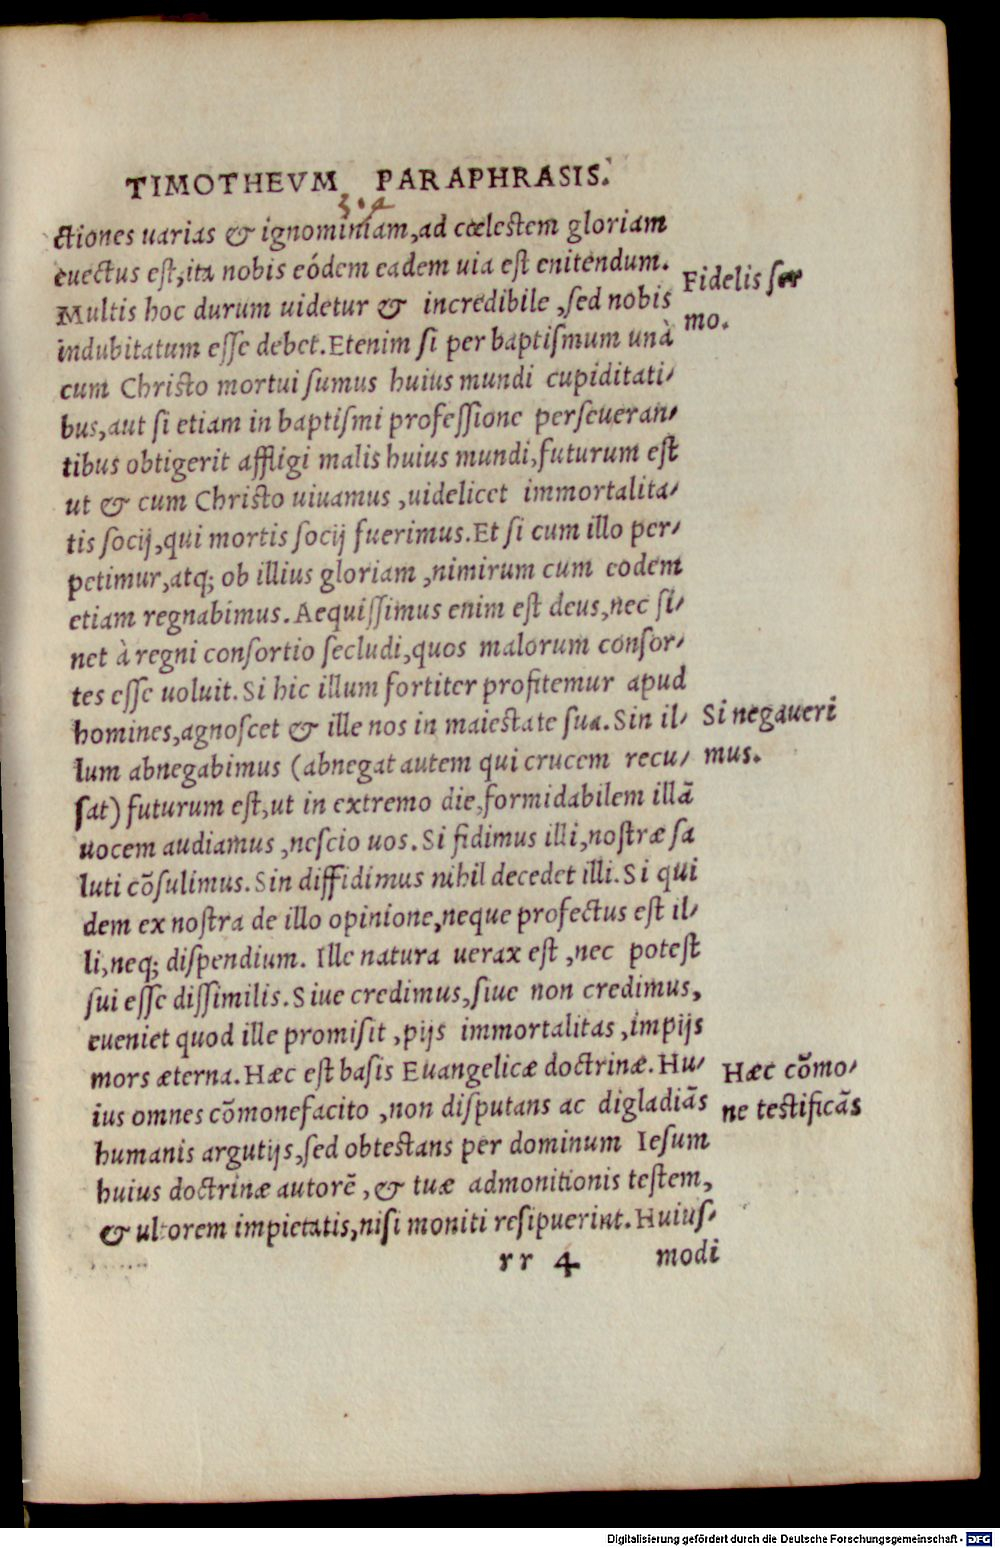 TIMOTHEVM PARAPHRASIS.
ctiones uarias & ignominiam, ad cœlestem gloriam
euectus est, ita nobis eódem eadem uia est enitendum.
Fidelis ser
Multis hoc durum uidetur & incredibile, sed nobis
mo.
indubitatum esse debet. Etenim si per baptismum unà
cum Christo mortui sumus huius mundi cupiditati-
bus, aut si etiam in baptismi professione perseueran-
tibus obtigerit affligi malis huius mundi, futurum est
ut & cum Christo uiuamus, uidelicet immortalita-
tis socij, qui mortis socij fuerimus. Et si cum illo per-
petimur, atq; ob illius gloriam, nimirum cum eodem
etiam regnabimus. Aequissimus enim est deus, nec si-
net à regni consortio secludi, quos malorum consor-
tes esse uoluit. Si hic illum fortiter profitemur apud
homines, agnoscet & ille nos in maiestate sua. Sin il-
Si negaueri
lum abnegabimus (abnegat autem qui crucem recu-
mus.
sat) futurum est, ut in extremo die, formidabilem illā
uocem audiamus, nescio uos. Si fidimus illi, nostræ sa
luti cōsulimus. Sin diffidimus nihil decedet illi. Si qui
dem ex nostra de illo opinione, neque profectus est il-
li, neq; dispendium. Ille natura uerax est, nec potest
sui esse dissimilis. Siue credimus, siue non credimus,
eueniet quod ille promisit, pijs immortalitas, impijs
mors æterna. Hæc est basis Euangelicæ doctrinæ. Hu-
Hæc cōmo-
ius omnes cōmonefacito, non disputans ac digladiās
ne testificās
humanis argutijs, sed obtestans per dominum Iesum
huius doctrinæ autorē, & tuæ admonitionis testem,
& ultorem impietatis, nisi moniti resipuerint. Huius-
rr 4 modi
Digitalisierung gefördert durch die Deutsche Forschungsgemeinschaft - DFG